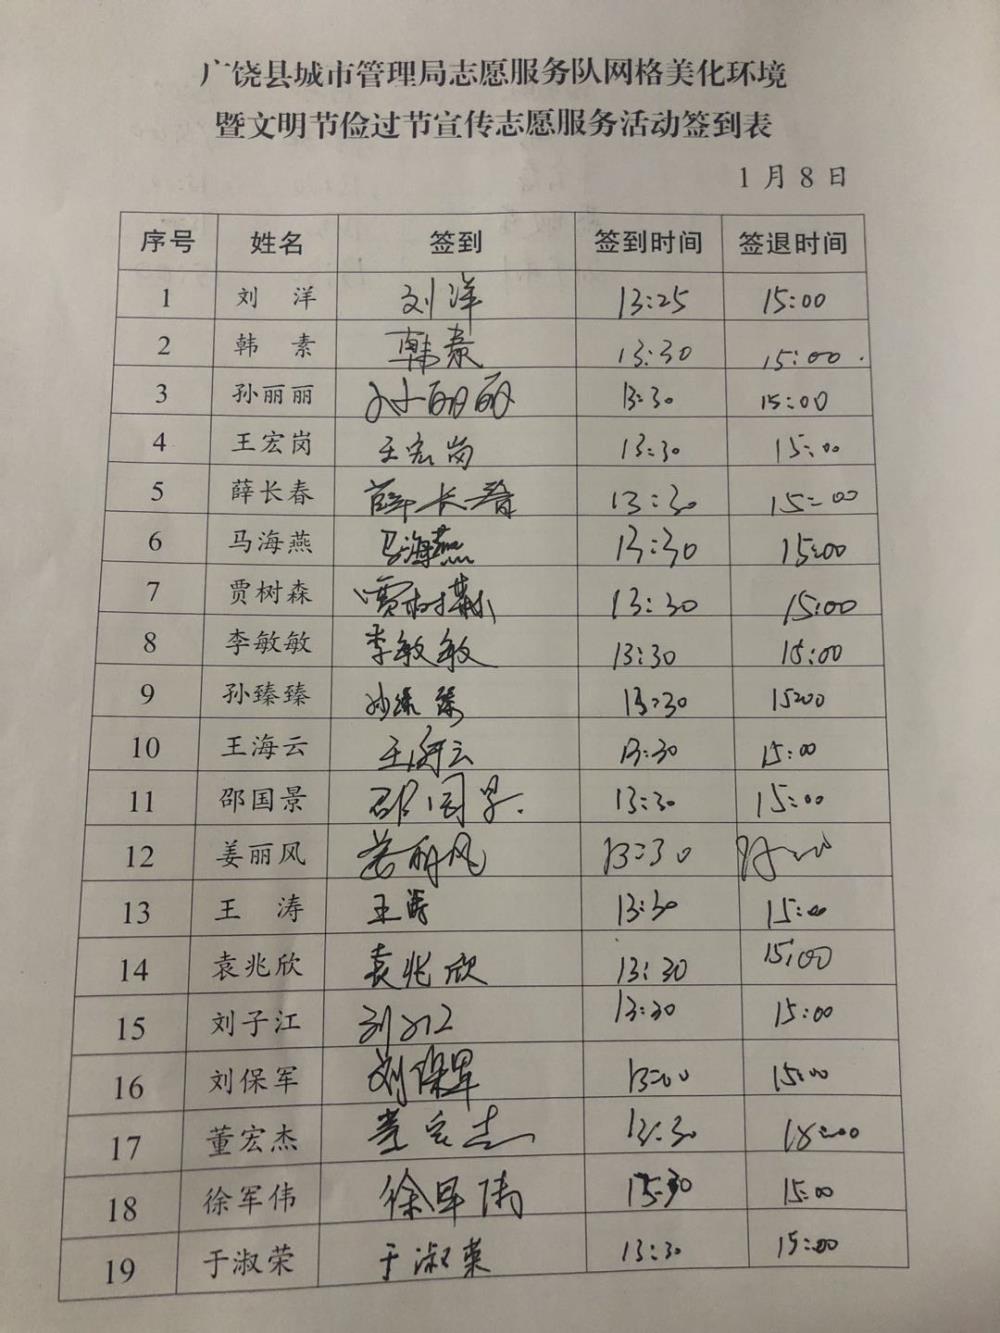 广饶县城市管理局志愿服务队网格美化环境
暨文明节俭过节宣传志愿服务活动签到表
1月8日
序号 姓名 签到 签到时间 签退时间
1 刘 洋 刘洋 13:25 15:00
2 韩 素 韩素 13:30 15:00.
3 孙丽丽 孙丽丽 13:30 15:00
4 王宏岗 王宏岗 13:30 15:00
5 薛长春 薛长春 13:30 15:00
6 马海燕 马海燕 13:30 15:00
7 贾树森 贾树森 13:30 15:00
8 李敏敏 李敏敏 13:30 15:00
9 孙臻臻 孙臻臻 13:30 15:00
10 王海云 王海云 13:30 15:00
11 邵国景 邵国景. 13:30 15:00
12 姜丽风 姜丽风 13:30
13 王 涛 王涛 13:30 15:00
14 袁兆欣 袁兆欣 13:30 15:00
15 刘子江 刘子江 13:30 15:00
16 刘保军 刘保军 13:00 15:00
17 董宏杰 董宏杰 13:30 15:00
18 徐军伟 徐军伟 15:00
19 于淑荣 于淑荣 13:30 15:00